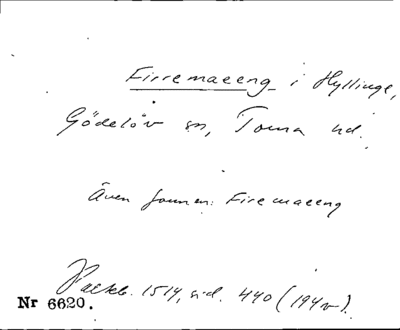 Firremaeeng i Hyllinge,
Gödelöv sn, Torna hd.
Även formen: Firemaeeng
Palteb. 1514, sid. 440 (194v).
Nr 6620.